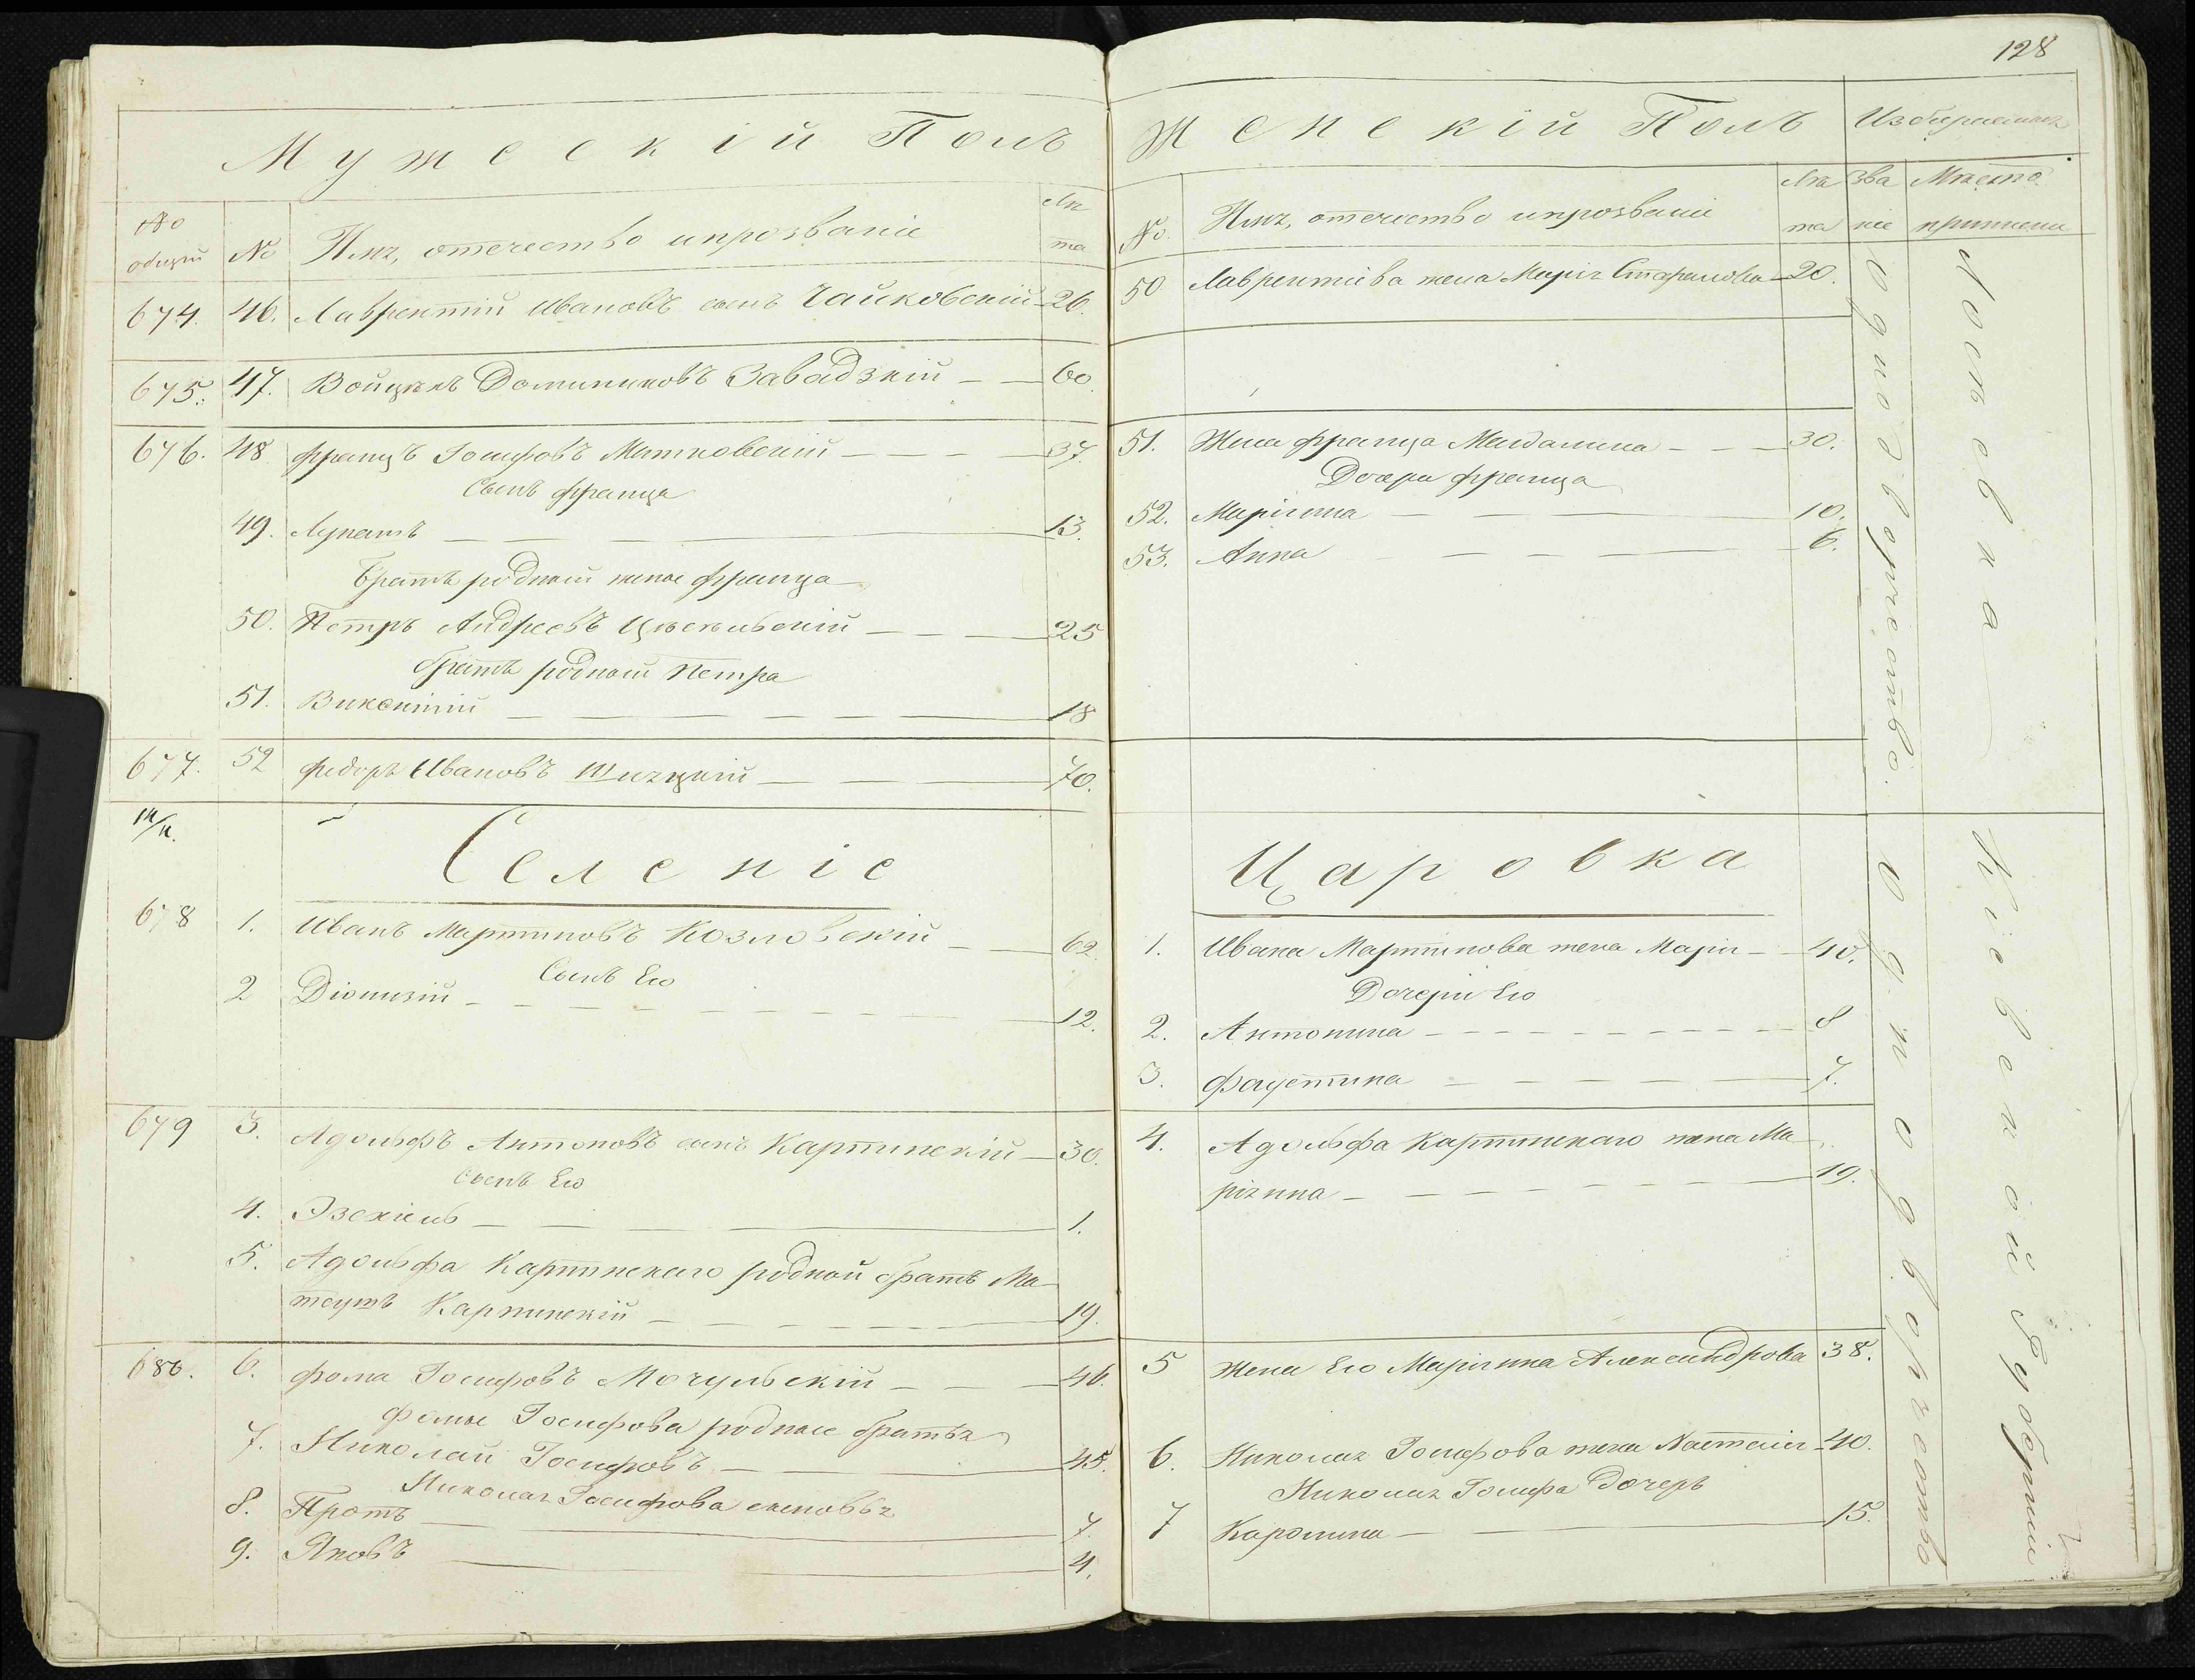 128
Мужескій Полъ
№ общій
№
Имя, отечество и прозваніе
Лѣта
674. 46. Лаврентій Ивановъ сынъ Чайковскій 26.
675. 47. Войцѣхъ Доминиковъ Завадзкій 60.
676. 48 Францъ Іосифовъ Матковскій 37.
Сынъ Франца
49. Лукашъ 13.
Братъ родной жены Франца
50. Петръ Андреевъ 25
братъ родной Петра
51. Викентій 18
677. 52 Федоръ Ивановъ 70.
Селеніе
678 1. Иванъ Мартиновъ Козловскій 62.
Сынъ Его
2 Діонизій 12.
679 3. Адольфъ Антоновъ сынъ Карпинскій 30.
Сынъ Его
4. Эзехіель 1.
5. Адольфа Карпинскаго родной братъ Ма-
теушъ Карпинскій 19.
680. 6. Фома Іосифовъ Мочульскій 46.
Фомы Іосифова родные братья
7. Николай Іосифовъ 45.
Николая Іосифова сыновья
8. Протъ 7.
9. Яковъ 4.
Женскій Полъ
Избираемыя
№.
Имя, отечество и прозваніе
Лѣта
Званіе
Мѣсто приписки
50 Лаврентіева жена Марія Стефанова 20.
51. Жена Франца Магдалина 30.
Дочери Франца
52. Маріянна 10.
53. Анна 6.
Однодворчество.
Лосѣевка
Царовка
1. Ивана Мартинова жена Марія 40.
Дочери Его
2. Антонина 8
3. Фаустина 7.
4. Адольфа Карпинскаго жена Ма-
ріянна 19.
5 Жена Его Маріянна Александрова 38.
6. Николая Іосифова жена Настасія 40.
Николая Іосифа Дочерь
7 Каролина 15.
Однодворчество
Кіевской Губерніи